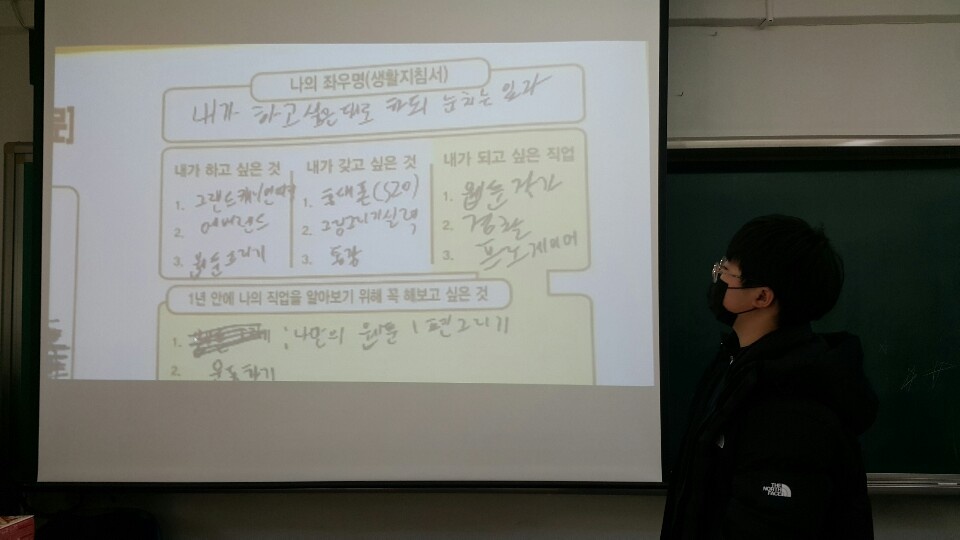 나의 좌우명(생활지침서)
내가 하고 싶은대로 하되 눈치는 있자
내가 하고 싶은 것
1. 그랜드캐니언여행
2. 에버랜드
3. 웹툰그리기
내가 갖고 싶은 것
1. 휴대폰(S20)
2. 그림그리기실력
3. 통장
내가 되고 싶은 직업
1. 웹툰작가
2. 경찰
3. 프로게이머
1년 안에 나의 직업을 알아보기 위해 꼭 해보고 싶은 것
1. ; 나만의 웹툰 1편그리기
2. 운동하기
THE
NORTH
FACE